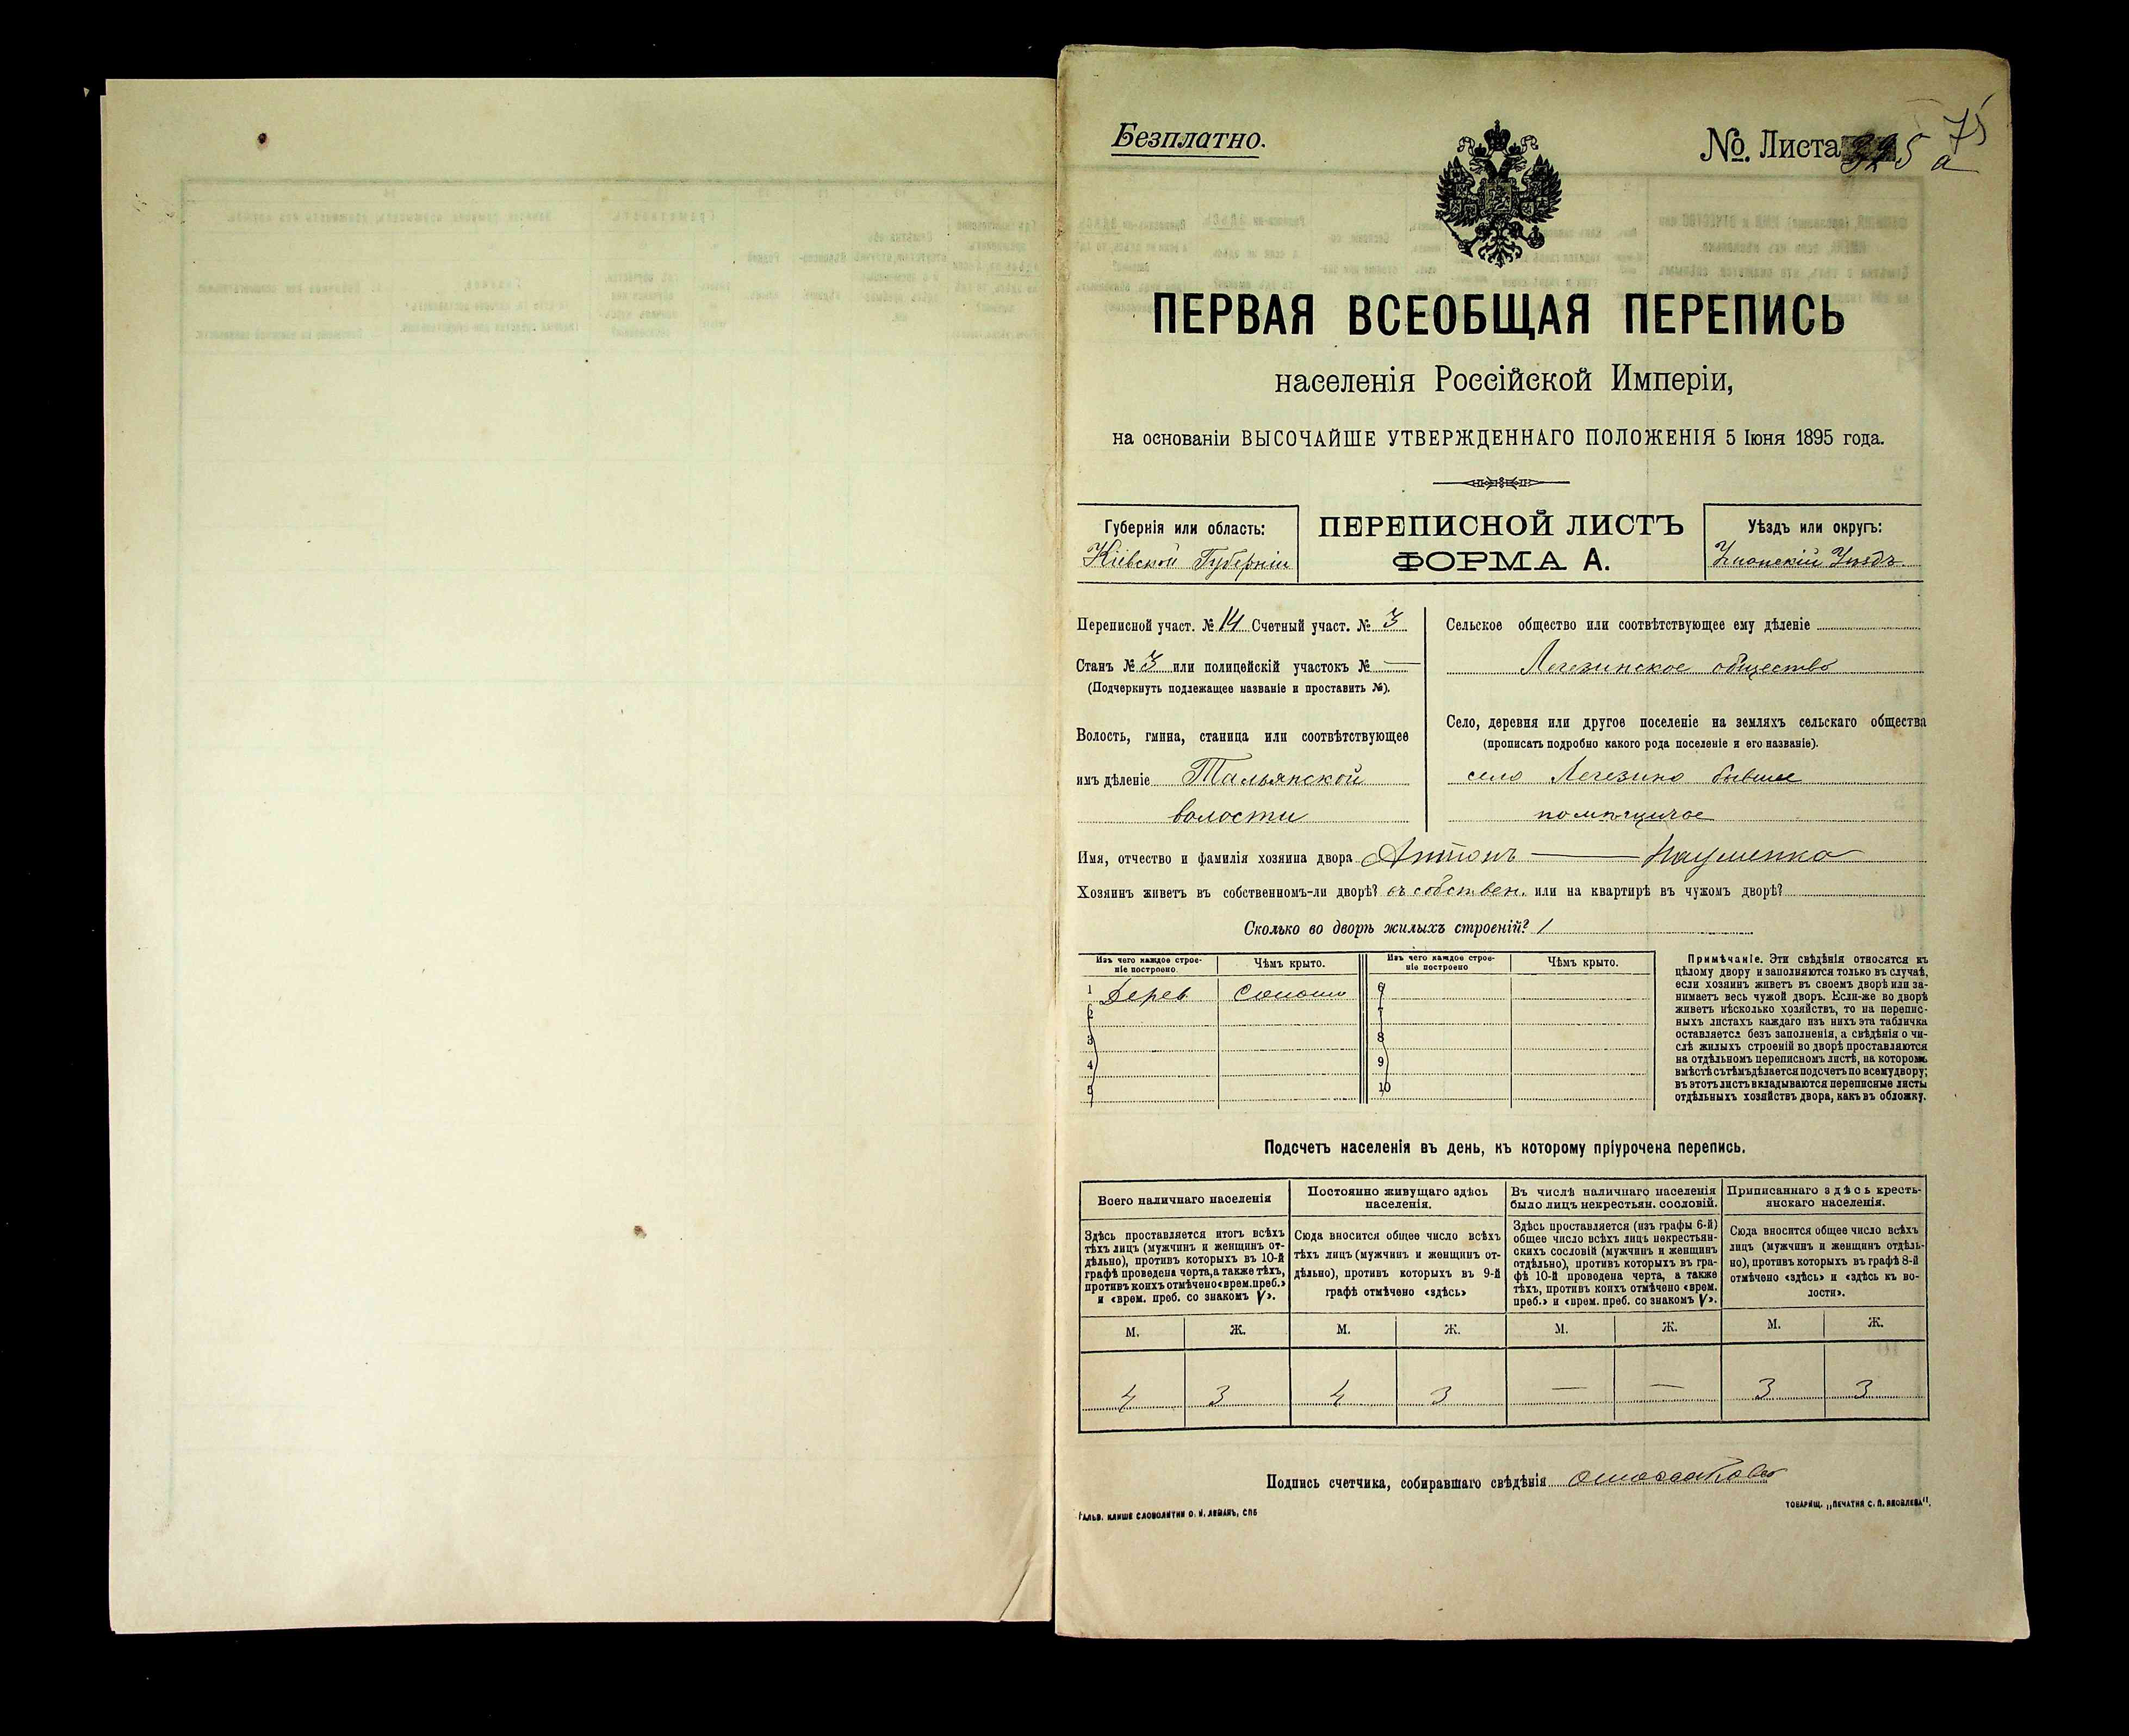 Безплатно.
№. Листа 325 а
75
ПЕРВАЯ ВСЕОБЩАЯ ПЕРЕПИСЬ
населенія Россійской Имперіи,
на основаніи ВЫСОЧАЙШЕ УТВЕРЖДЕННАГО ПОЛОЖЕНІЯ 5 Іюня 1895 года.
Губернія или область:
Кіевской Губерніи
ПЕРЕПИСНОЙ ЛИСТЪ
ФОРМА А.
Уѣздъ или округъ:
Уманскій Уѣздъ
Переписной участ. № 14 Счетный участ. № 3
Станъ № 3 или полицейскій участокъ № —
(Подчеркнуть подлежащее названіе и проставить №).
Волость, гмина, станица или соотвѣтствующее
имъ дѣленіе Тальянской
волости
Сельское общество или соотвѣтствующее ему дѣленіе
Легезинское общество
Село, деревня или другое поселеніе на земляхъ сельскаго общества
(прописать подробно какого рода поселеніе и его названіе).
село Легезино бывшее
помѣщичое
Имя, отчество и фамилія хозяина двора Антонъ — Науменко
Хозяинъ живетъ въ собственномъ-ли дворѣ? въ собствен. или на квартирѣ въ чужомъ дворѣ?
Сколько во дворѣ жилыхъ строеній? 1
Изъ чего каждое строе-
ніе построено.
Чѣмъ крыто.
Изъ чего каждое строе-
ніе построено
Чѣмъ крыто.
1 Дерев. Соломы
2
3
4
5
6
7
8
9
10
Примѣчаніе. Эти свѣдѣнія относятся къ
цѣлому двору и заполняются только въ случаѣ,
если хозяинъ живетъ въ своемъ дворѣ или за-
нимаетъ весь чужой дворъ. Если-же во дворѣ
живетъ нѣсколько хозяйствъ, то на перепис-
ныхъ листахъ каждаго изъ нихъ эта табличка
оставляется безъ заполненія, а свѣдѣнія о чи-
слѣ жилыхъ строеній во дворѣ проставляются
на отдѣльномъ переписномъ листѣ, на которомъ
вмѣстѣ съ тѣмъ дѣлается подсчетъ по всему двору;
въ этотъ листъ вкладываются переписные листы
отдѣльныхъ хозяйствъ двора, какъ въ обложку.
Подсчетъ населенія въ день, къ которому пріурочена перепись.
Всего наличнаго населенія
Здѣсь проставляется итогъ всѣхъ
тѣхъ лицъ (мужчинъ и женщинъ от-
дѣльно), противъ которыхъ въ 10-й
графѣ проведена черта, а также тѣхъ,
противъ коихъ отмѣчено «врем. преб.»
и «врем. преб. со знакомъ V».
Постоянно живущаго здѣсь
населенія.
Сюда вносится общее число всѣхъ
тѣхъ лицъ (мужчинъ и женщинъ от-
дѣльно), противъ которыхъ въ 9-й
графѣ отмѣчено «здѣсь»
Въ числѣ наличнаго населенія
было лицъ некрестьян. сословій.
Здѣсь проставляется (изъ графы 6-й)
общее число всѣхъ лицъ некрестьян-
скихъ сословій (мужчинъ и женщинъ
отдѣльно), противъ которыхъ въ гра-
фѣ 10-й проведена черта, а также
тѣхъ, противъ коихъ отмѣчено «врем.
преб.» и «врем. преб. со знакомъ V».
Приписаннаго здѣсь кресть-
янскаго населенія.
Сюда вносится общее число всѣхъ
лицъ (мужчинъ и женщинъ отдѣль-
но), противъ которыхъ въ графѣ 8-й
отмѣчено «здѣсь» и «здѣсь къ во-
лости».
М. Ж. М. Ж. М. Ж. М. Ж.
4 3 4 3 — — 3 3
Подпись счетчика, собиравшаго свѣдѣнія
ГАЛЬВ. КЛИШЕ СЛОВОЛИТНИ О. И. ЛЕМАНЪ, СПБ
ТОВАРИЩ. „ПЕЧАТНЯ С. П. ЯКОВЛЕВА".